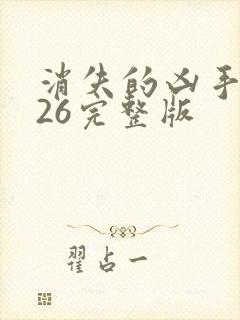 消失的凶手
26完整版
翟占一